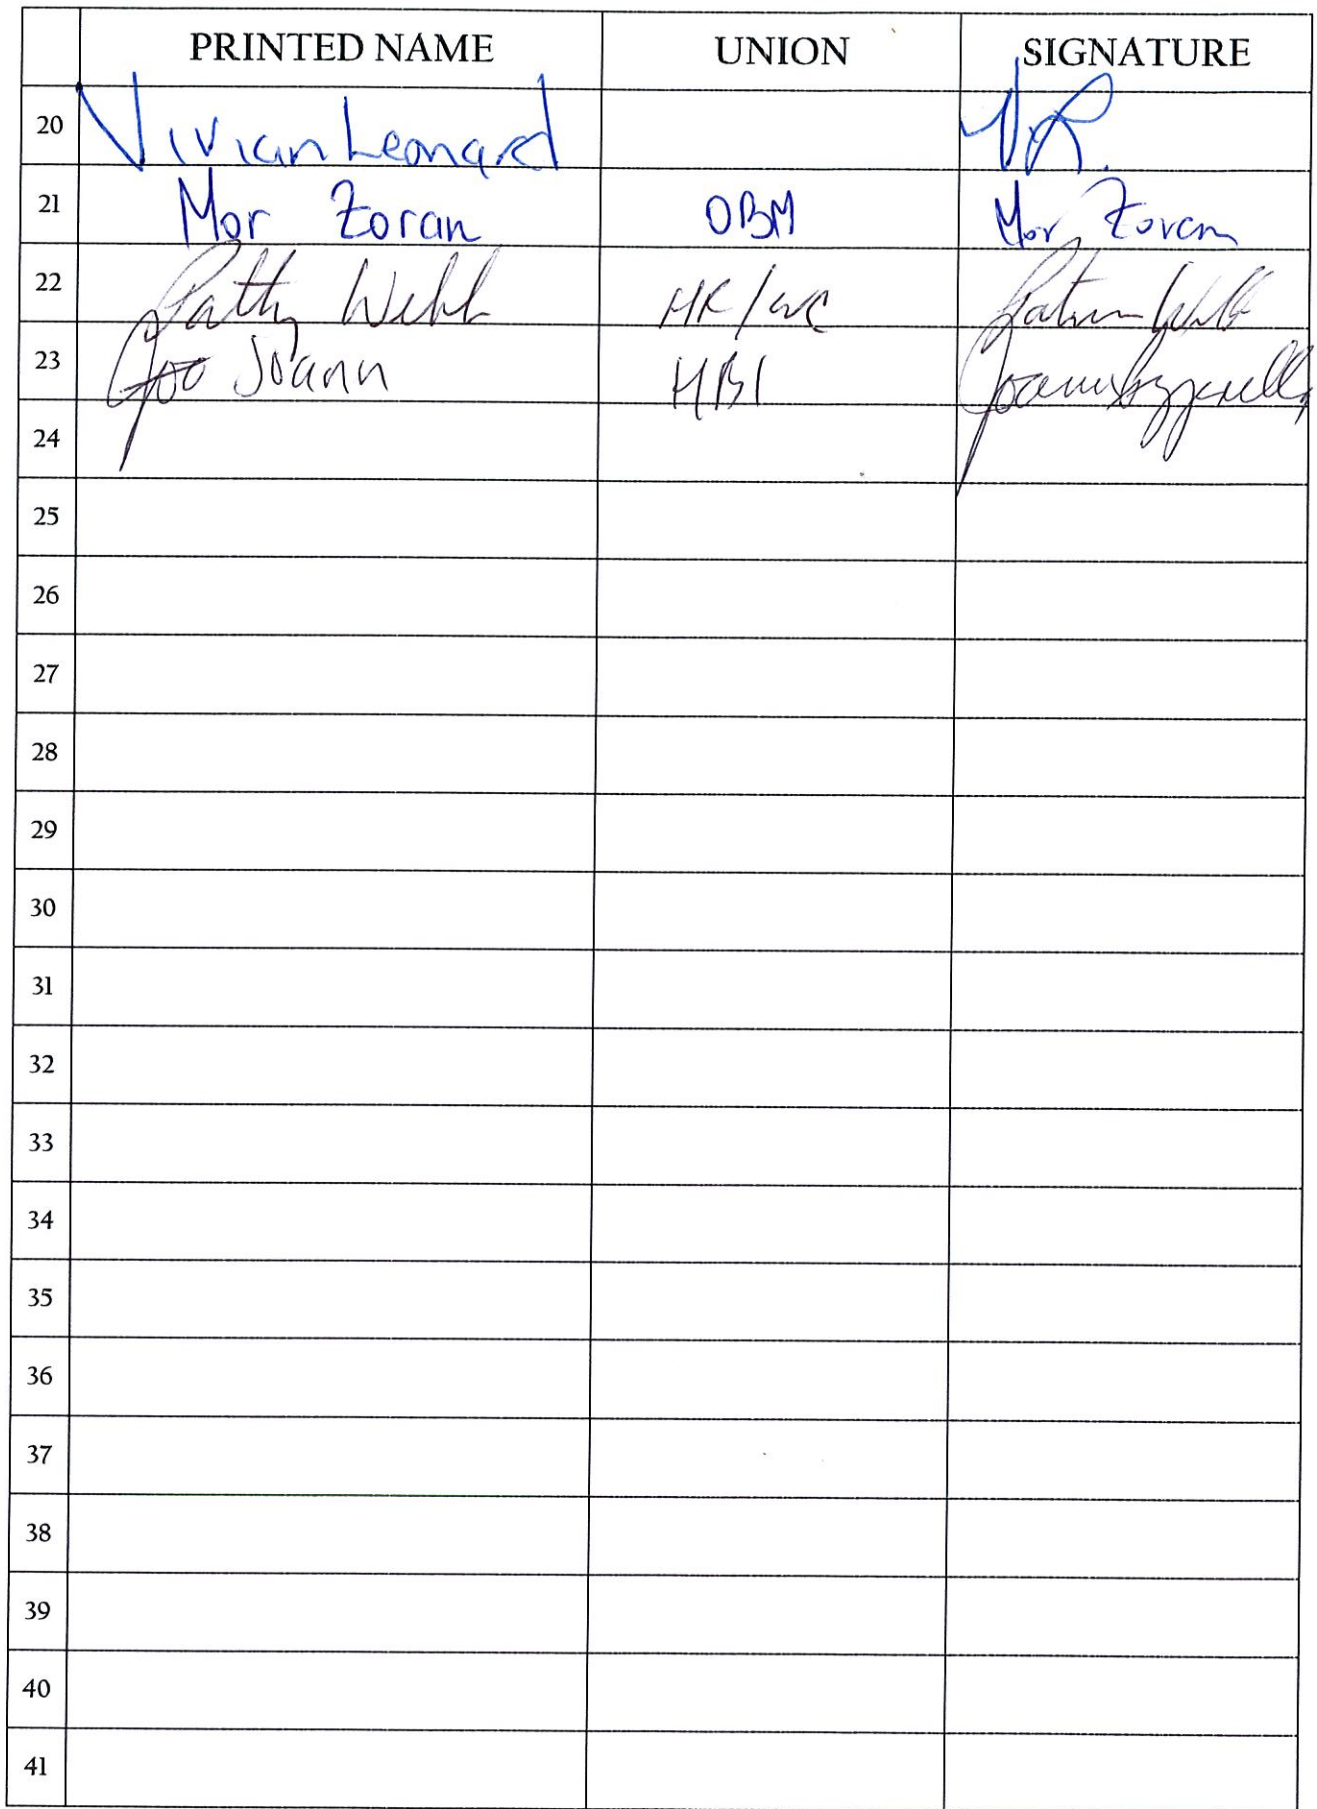 PRINTED NAME UNION SIGNATURE
20 Vivian Leonard
21 Mor Zoran OBM Mor Zoran
22 Patty Webb HR/WC
23 Joann HBI
24
25
26
27
28
29
30
31
32
33
34
35
36
37
38
39
40
41